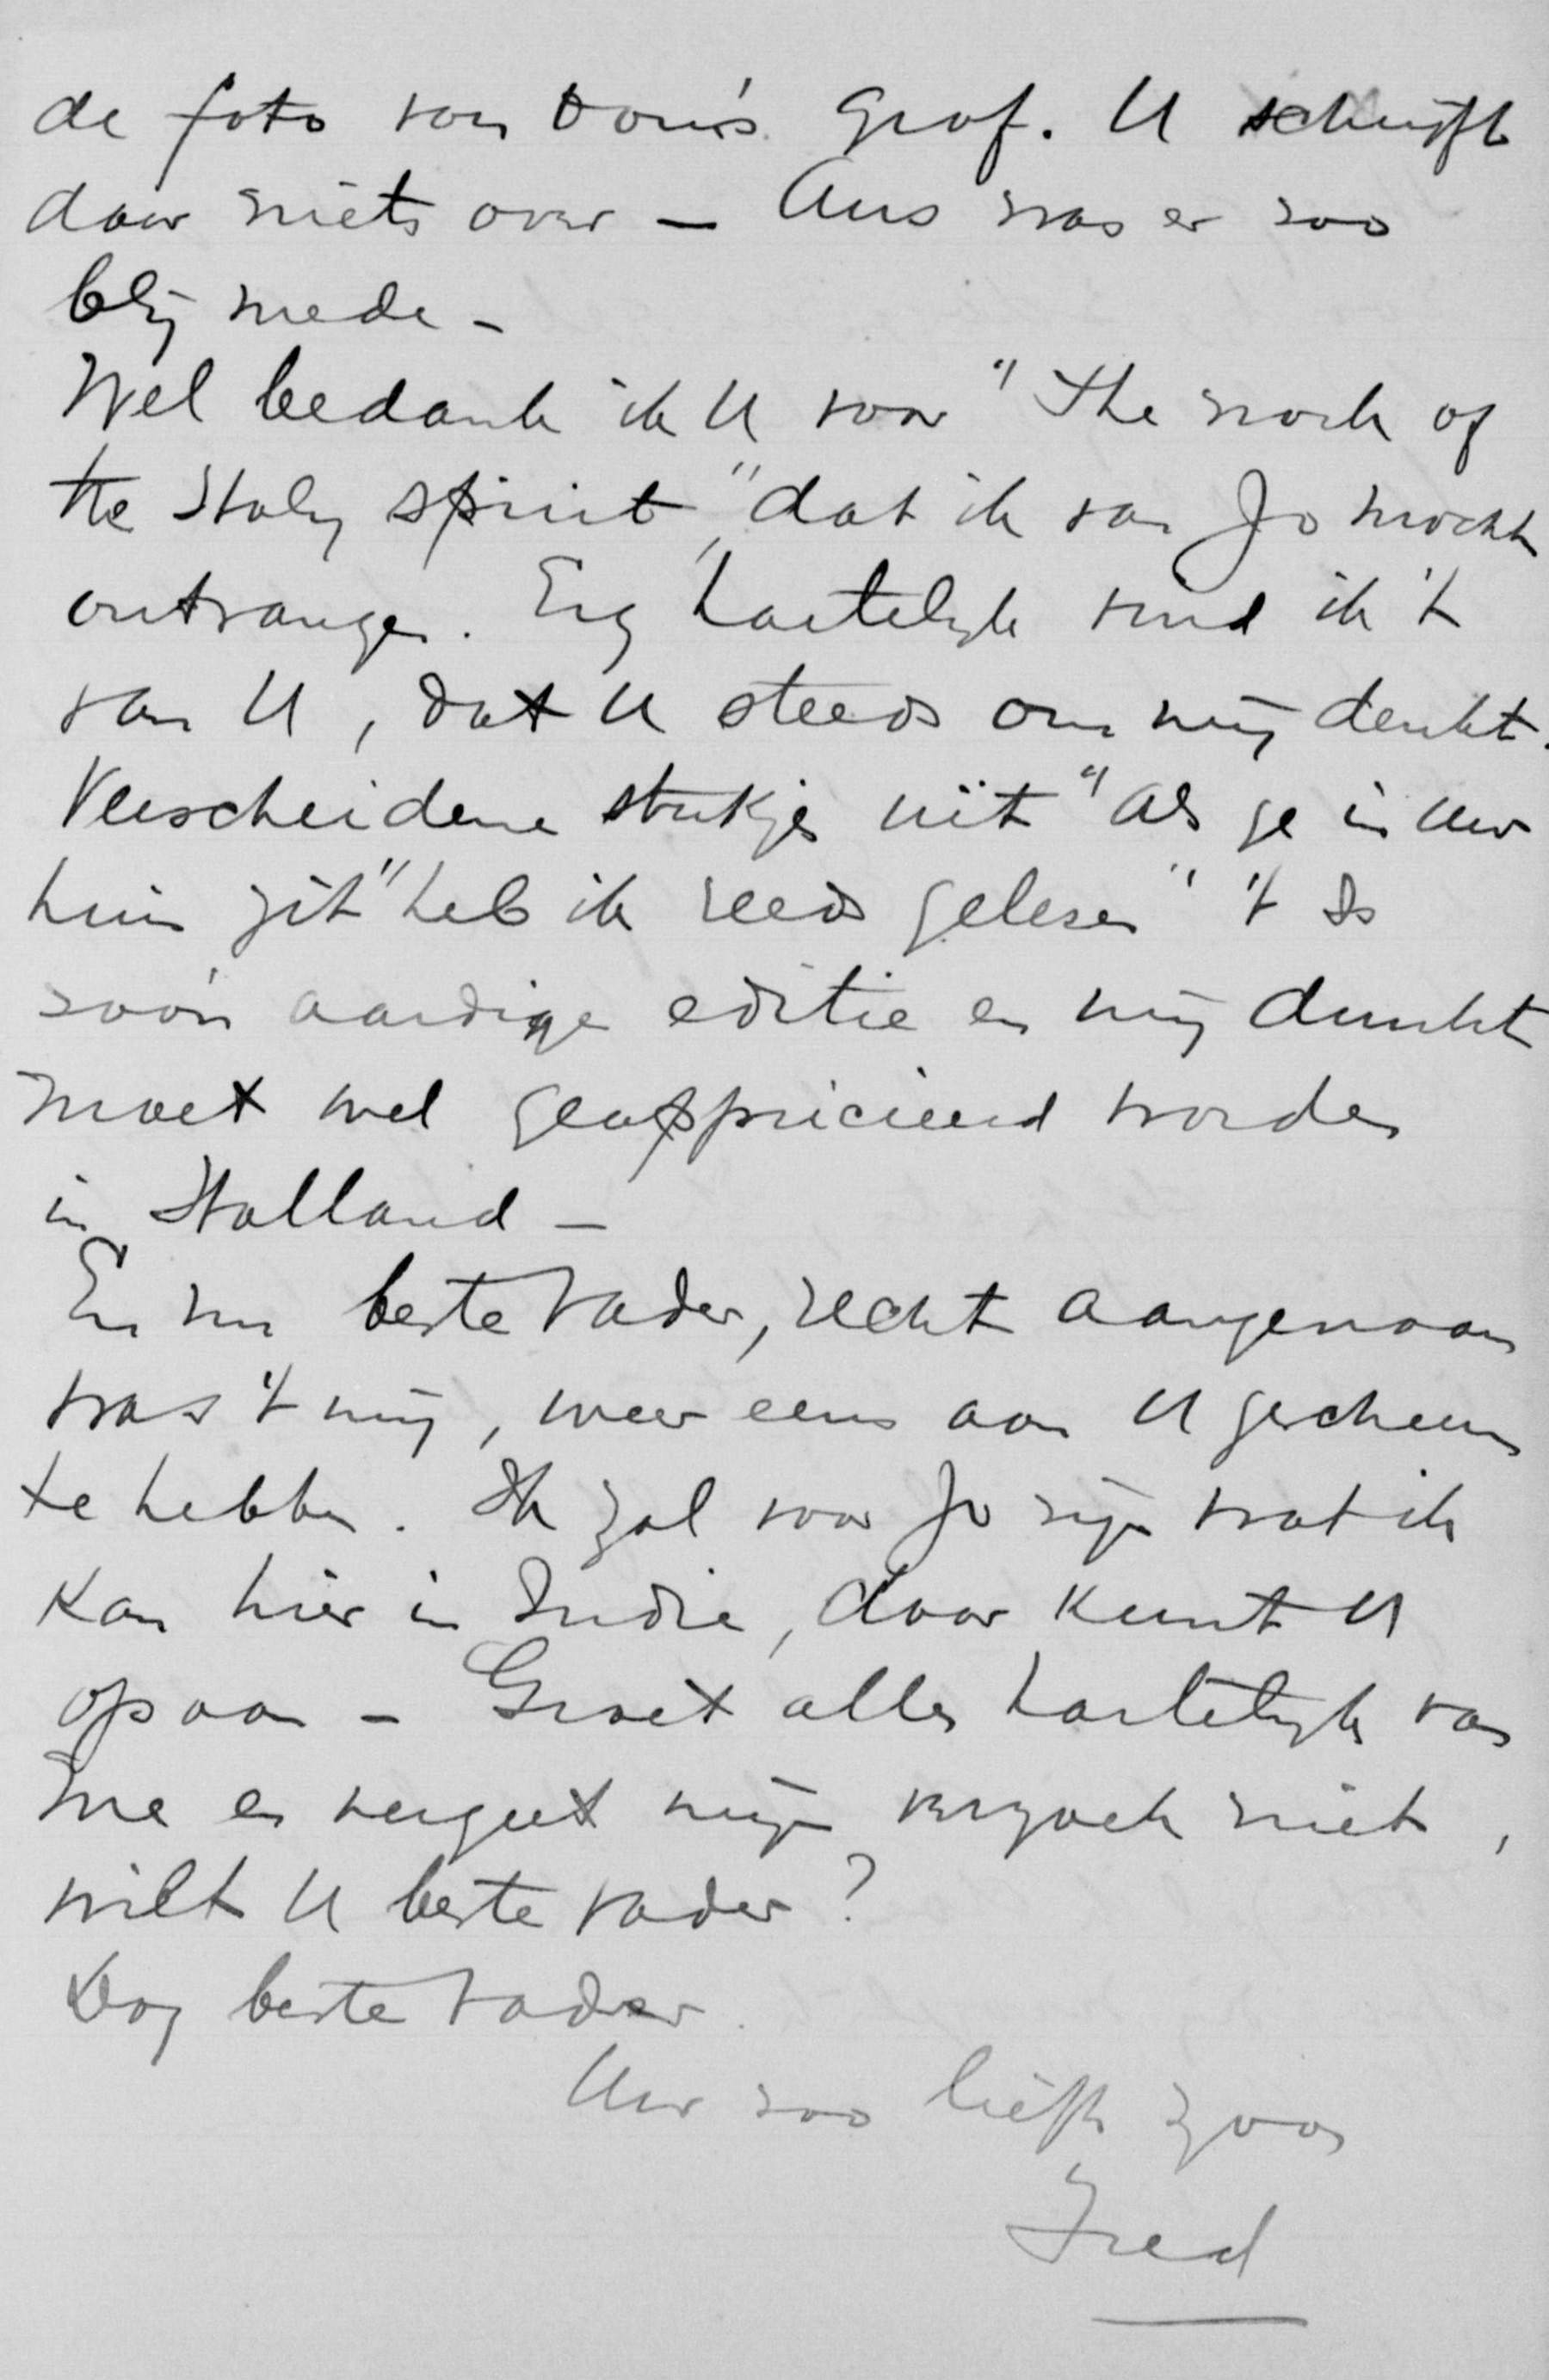 de foto van Dori's graf. U schrijft
daar niets over – Ans was er zoo
blij mede –
Wel bedank ik U voor "The work of
the Holy spirit", dat ik van Jo mocht
ontvangen. Erg hartelijk vind ik 't
van U, dat U steeds om mij denkt.
Verscheidene stukjes uit "als ge in uw
huis zit" heb ik reeds gelezen" 't Is
zoo'n aardige editie en mij dunkt
moet wel geappricieerd worden
in Holland –
En nu beste Vader, recht aangenaam
was 't mij, weer eens aan U geschreven
te hebben. Ik zal voor Jo zijn wat ik
kan hier in Indie, daar kunt U
op aan – Groet allen hartelijk van
me en vergeet mijn verzoek niet,
wilt U beste vader?
Dag beste Vader.
Uw zoo liefh zoon
Fred